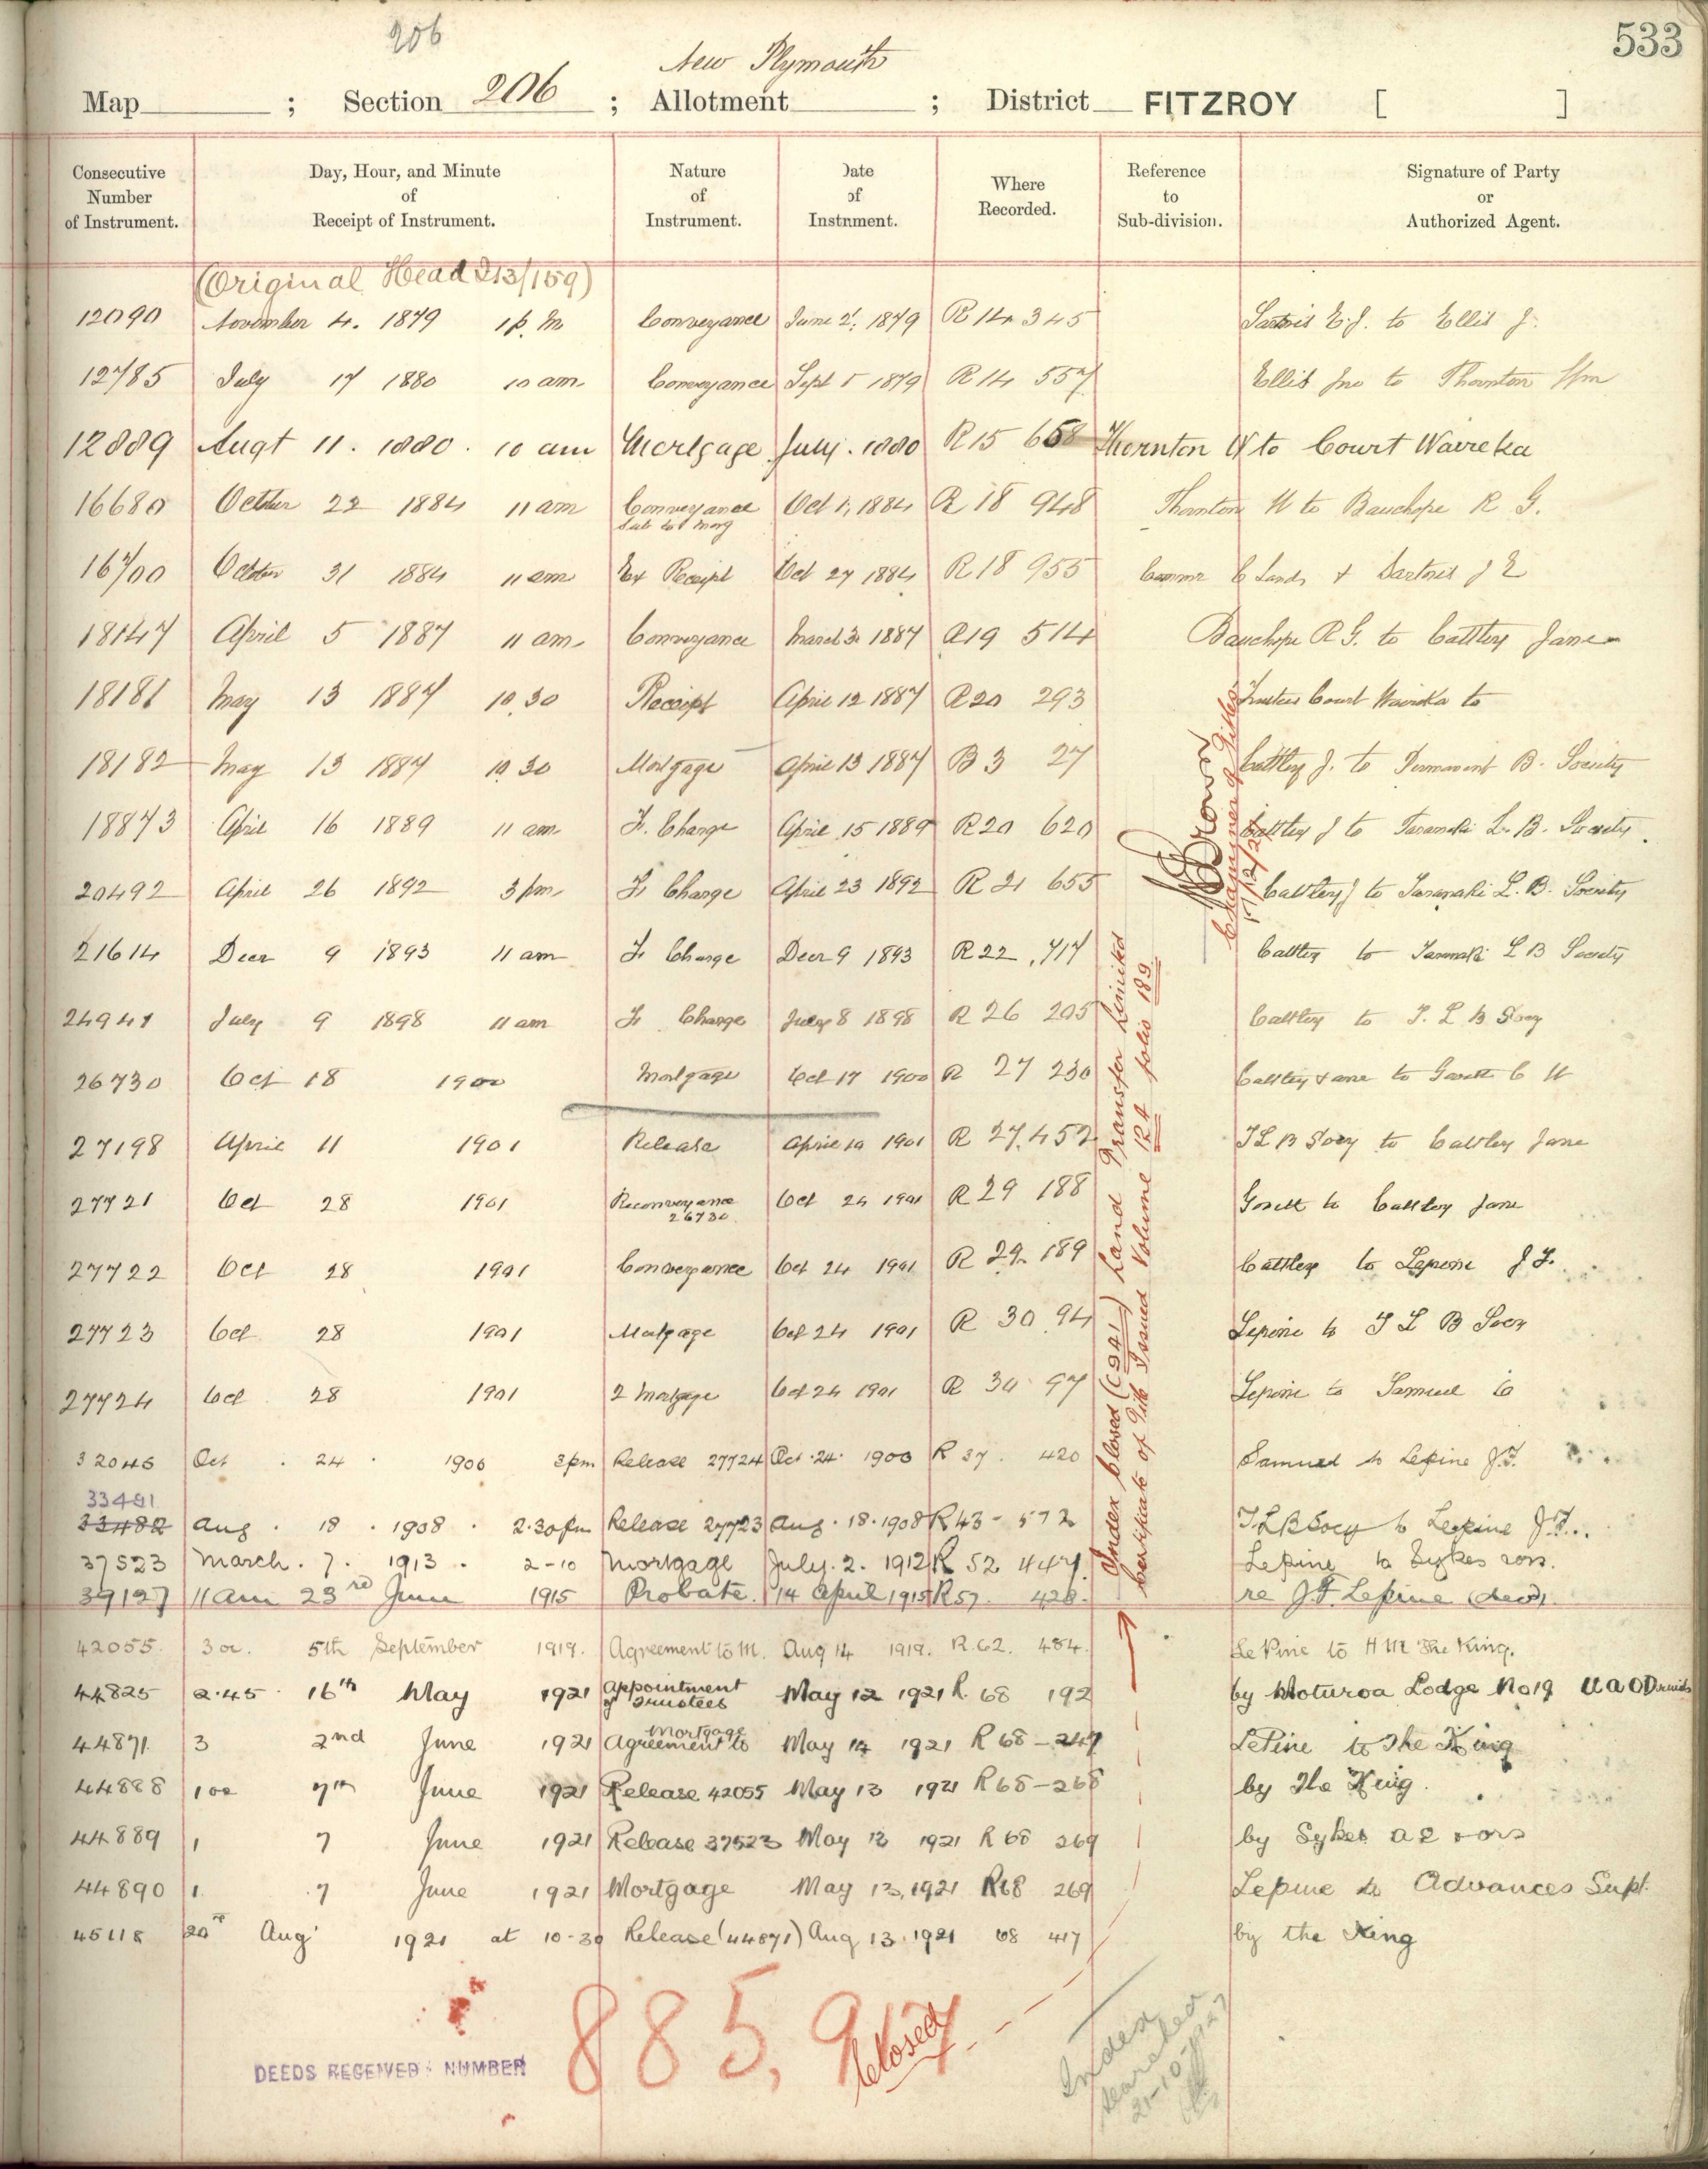 206
533
New Plymouth
Map ; Section 206 ; Allotment ; District FITZROY [ ]
Consecutive Number of Instrument. Day, Hour, and Minute of Receipt of Instrument. Nature of Instrument. Date of Instrument. Where Recorded. Reference to Sub-division. Signature of Party or Authorized Agent.
(Original Head 213/159)
12090 November 4. 1879 1 p.m Conveyance June 2, 1879 R 14 345 Sartoris E.J. to Ellis J.
12785 July 17 1880 10 am Conveyance Sept 5 1879 R 14 557 Ellis Jno to Thornton Wm
12889 Augt 11. 1880. 10 am Mortgage July. 1880 R 15 658 Thornton W to Court Waireka
16680 October 22 1884 11 am Conveyance Sub to mog Oct 1, 1884 R 18 948 Thornton W to Bauchope R G.
16700 October 31 1884 11 am Ex Receipt Oct 27 1884 R 18 955 Commr C Lands & Sartoris J E
18147 April 5 1887 11 am Conveyance March 3 1887 R 19 514 Bauchope R G. to Cattley Jane
18181 May 13 1887 10.30 Receipt April 12 1887 R 20 293 Trustees Court Waireka to
18182 May 13 1887 10 30 Mortgage April 13 1887 B 3 27 Cattley J. to Permanent B. Society
18873 April 16 1889 11 am F. Charge April 15 1889 R 20 620 Cattley J to Taranaki L. B. Society.
20492 April 26 1892 3 pm F. Charge April 23 1892 R 21 655 Cattley J to Taranaki L. B. Society
21614 Decr 9 1893 11 am F Charge Decr 9 1893 R 22 717 Cattley to Taranaki L B Society
24941 July 9 1898 11 am F. Charge July 8 1898 R 26 205 Cattley to T. L B Socy
26730 Oct 18 1900 Mortgage Oct 17 1900 R 27 230 Cattley Jane to C W
27198 April 11 1901 Release April 10 1901 R 27.452 T L B Socy to Cattley Jane
27721 Oct 28 1901 Reconveyance 26730 Oct 24 1901 R 29 188 to Cattley Jane
27722 Oct 28 1901 Conveyance Oct 24 1901 R 29 189 Cattley to Lepine J F.
27723 Oct 28 1901 Mortgage Oct 24 1901 R 30 94 Lepine to T L B Socy
27724 Oct 28 1901 2 Mortgage Oct 24 1901 R 30 97 Lepine to Samuel O
32046 Oct. 24. 1906 3 pm Release 27724 Oct. 24. 1906 R 37. 420 Samuel to Lepine J.F.
33481
33482 Aug. 18. 1908. 2.30 pm Release 27723 Aug. 18. 1908 R 43 - 572 T.L.B Socy to Lepine J.F.
37523 March. 7. 1913. 2-10 Mortgage July. 2. 1912 R 52 447 Lepine to Sykes & ors.
39127 11 am 23rd June 1915 Probate. 14 April 1915 R 57. 428. re J.F. Lepine (decd).
42055. 3 oc. 5th September 1919. Agreement to M. Aug 14 1919. R. 62. 484. Le Pine to H M The King.
44825 2.45 16th May 1921 Appointment of Trustees May 12 1921 R. 68 192 by Moturoa Lodge No 19 U A O Druids
44871 3 2nd June 1921 Agreement to Mortgage May 14 1921 R 68 - 247 LePine to The King
44888 1 oc 7th June 1921 Release 42055 May 13 1921 R 68 - 268 by The King.
44889 1 7 June 1921 Release 37523 May 13 1921 R 68 269 by Sykes A E & ors
44890 1. 7 June 1921 Mortgage May 13, 1921 R 68 269 Lepine to Advances Supt.
45118 20th Aug 1921 at 10-30 Release (44871) Aug 13. 1921 68 417 by the King
Index Closed (C 941) Land Transfer Limited
Certificate of Title Issued Volume 124 folio 189
Brown
Examiner of Titles
DEEDS RECEIVED: NUMBER
885, 917
Closed
Index
searched
21-10-1927